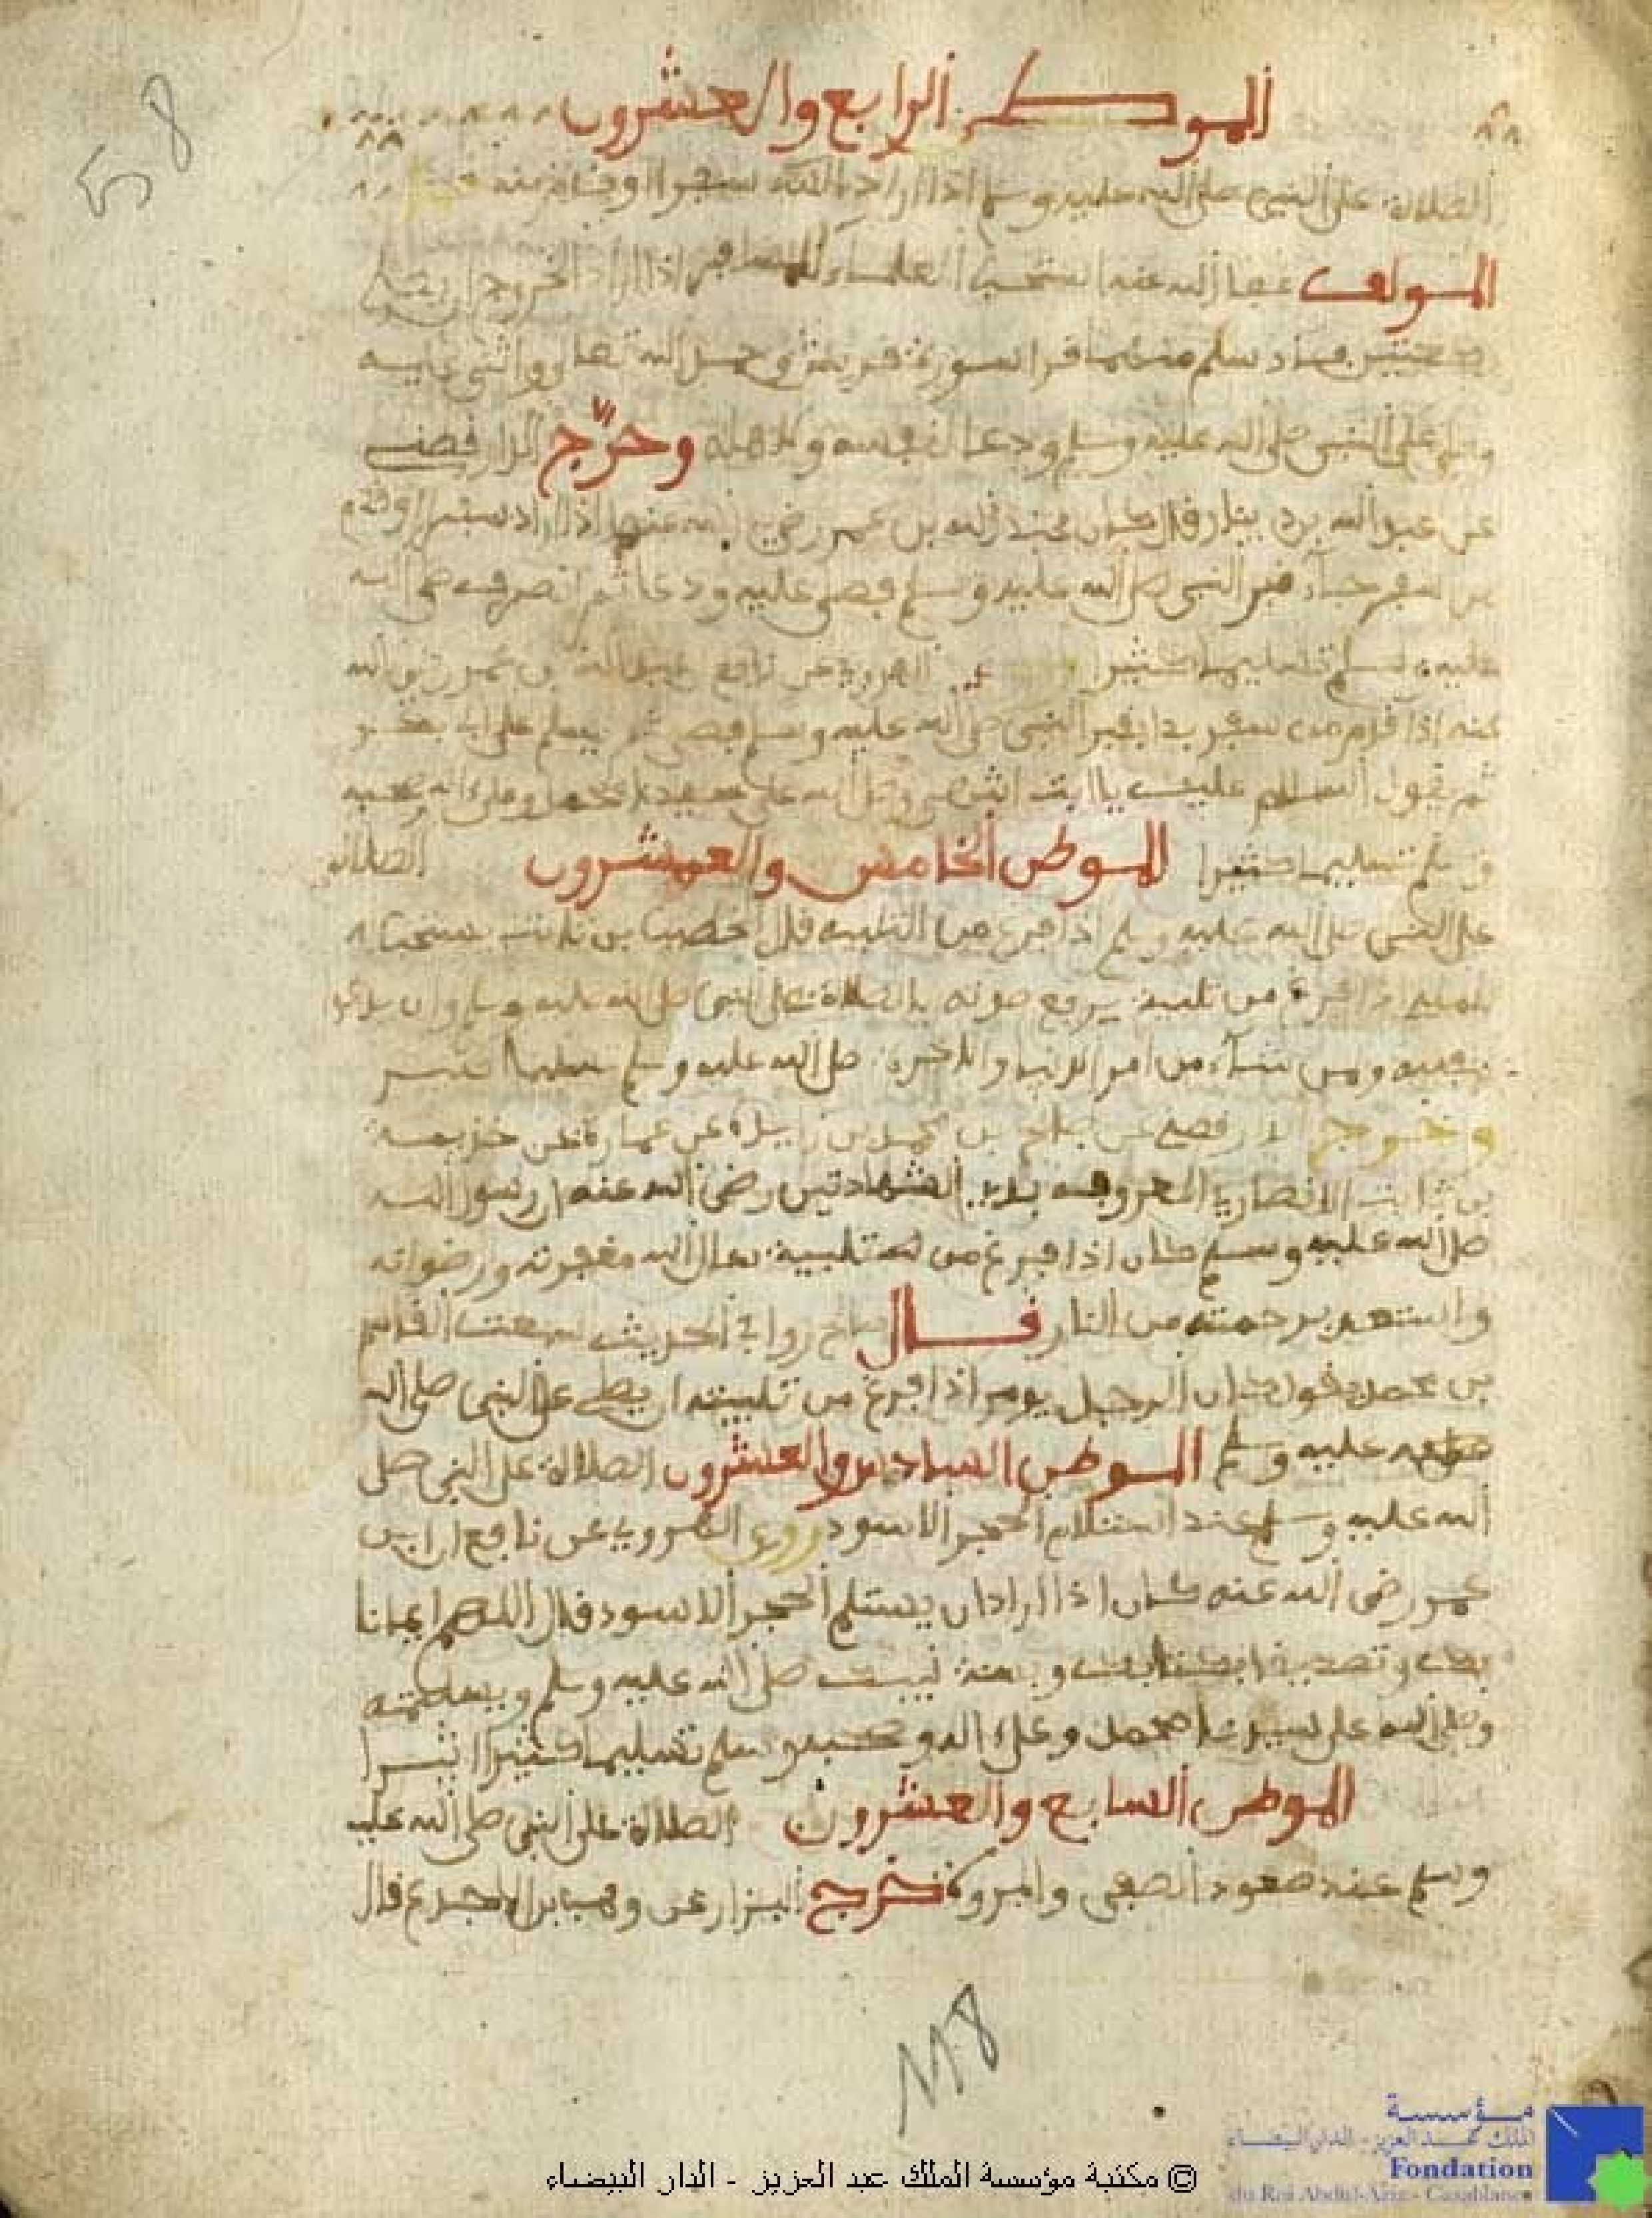 الموطن الرابع والعشرون
الصلاة على النبي صلى الله عليه وسلم اذا اراد سفرا او قدم منه
المولف عفا الله عنه استحب العلماء للمسافر اذا اراد الخروج ان يصلي
ركعتين فاذا سلم منهما قرا سورة قريش وحمد الله تعلى واثنى عليه
وصلى على النبي صلى الله عليه وسلم ودعا لنفسه ولاهله وخرّج الدارقطني
عن عبد الله بن دينار قال كان عبد الله بن عمر رضي الله عنهما اذا اراد سفرا او قدم
من سفر جاء قبر النبي صلى الله عليه وسلم فصلى عليه ودعا ثم انصرف صلى الله
عليه وسلم تسليما كثيرا الهروي عن نافع عبد الله بن عمر رضي الله
عنه اذا قدم من سفر بدا بقبر النبي صلى الله عليه وسلم فيصلي ثم يسلم على ابي بكر
ثم يقول السلام عليك يا ابت انتهى وصلى الله على سيدنا محمد وعلى اله وصحبه
وسلم تسليما كثيرا الموطن الخامس والعشرون الصلاة
على النبي صلى الله عليه وسلم اذا فرغ من التلبية قال خصيب بن ثابت يستحب
للملبي اذا فرغ من تلبية يرفع صوته بالصلاة على النبي صلى الله عليه وسلم وان يدعوا
لنفسه ومن شاء من امر الدنيا والاخرة صلى الله عليه وسلم تسليما
وخرج الدارقطني عن صالح بن محمد بن زايدة عن عمارة عن خزيمة
بن ثابت الانصاري المعروف بذي الشهادتين رضي الله عنه ان رسول الله
صلى الله عليه وسلم كان اذا فرغ من تلبية سال الله مغفرته ورضوانه
واستعد برحمته من النار قال صالح روا في الحديث سمعت القاسم
بن محمد يقول كان الرجل يومر اذا فرغ من تلبيته ان يصلي على النبي صلى الله
عليه وسلم الموطن السادس والعشرون الصلاة على النبي صلى
الله عليه وسلم عند استلام الحجر الاسود روى الهروي عن نافع ان ابن
عمر رضي الله عنه كان اذا اراد ان يستلم الحجر الاسود قال اللهم ايمانا
بك وتصديقا بكتابك وسنة نبيك صلى الله عليه وسلم ويستلمه
وصلى الله على سيدنا محمد وعلى اله وصحبه وسلم تسليما كثيرا اثيرا
الموطن السابع والعشرون الصلاة على النبي صلى الله عليه
وسلم عند صعود الصفى والمروة خرج البزار عن وهب بن الاجدع قال
118
© مكتبة مؤسسة الملك عبد العزيز - الدار البيضاء
مؤسسة
الملك عبد العزيز - الدار البيضاء
Fondation
du Roi Abdul-Aziz - Casablanca